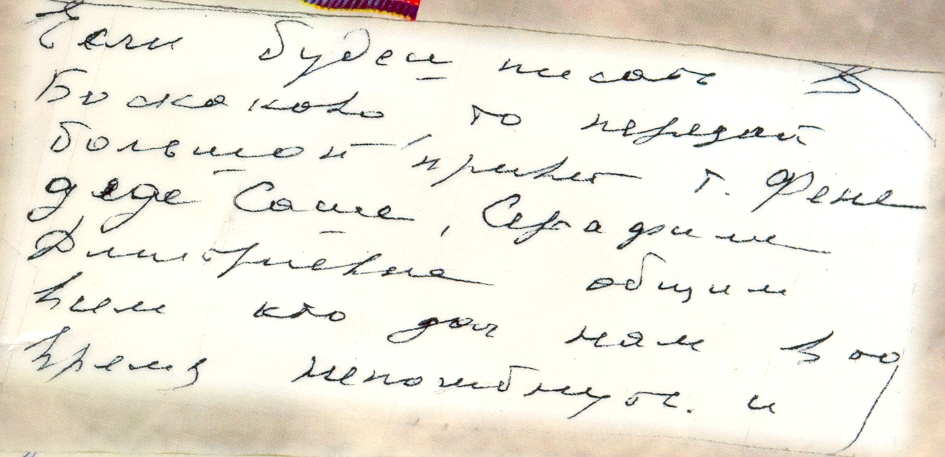 Если будеш писать в
Бускаково то передай
большой привет т. Фене
деде Саше, Серафиме
Дмитриевне общим
всем кто дал нам в то
время непогибнуть. и